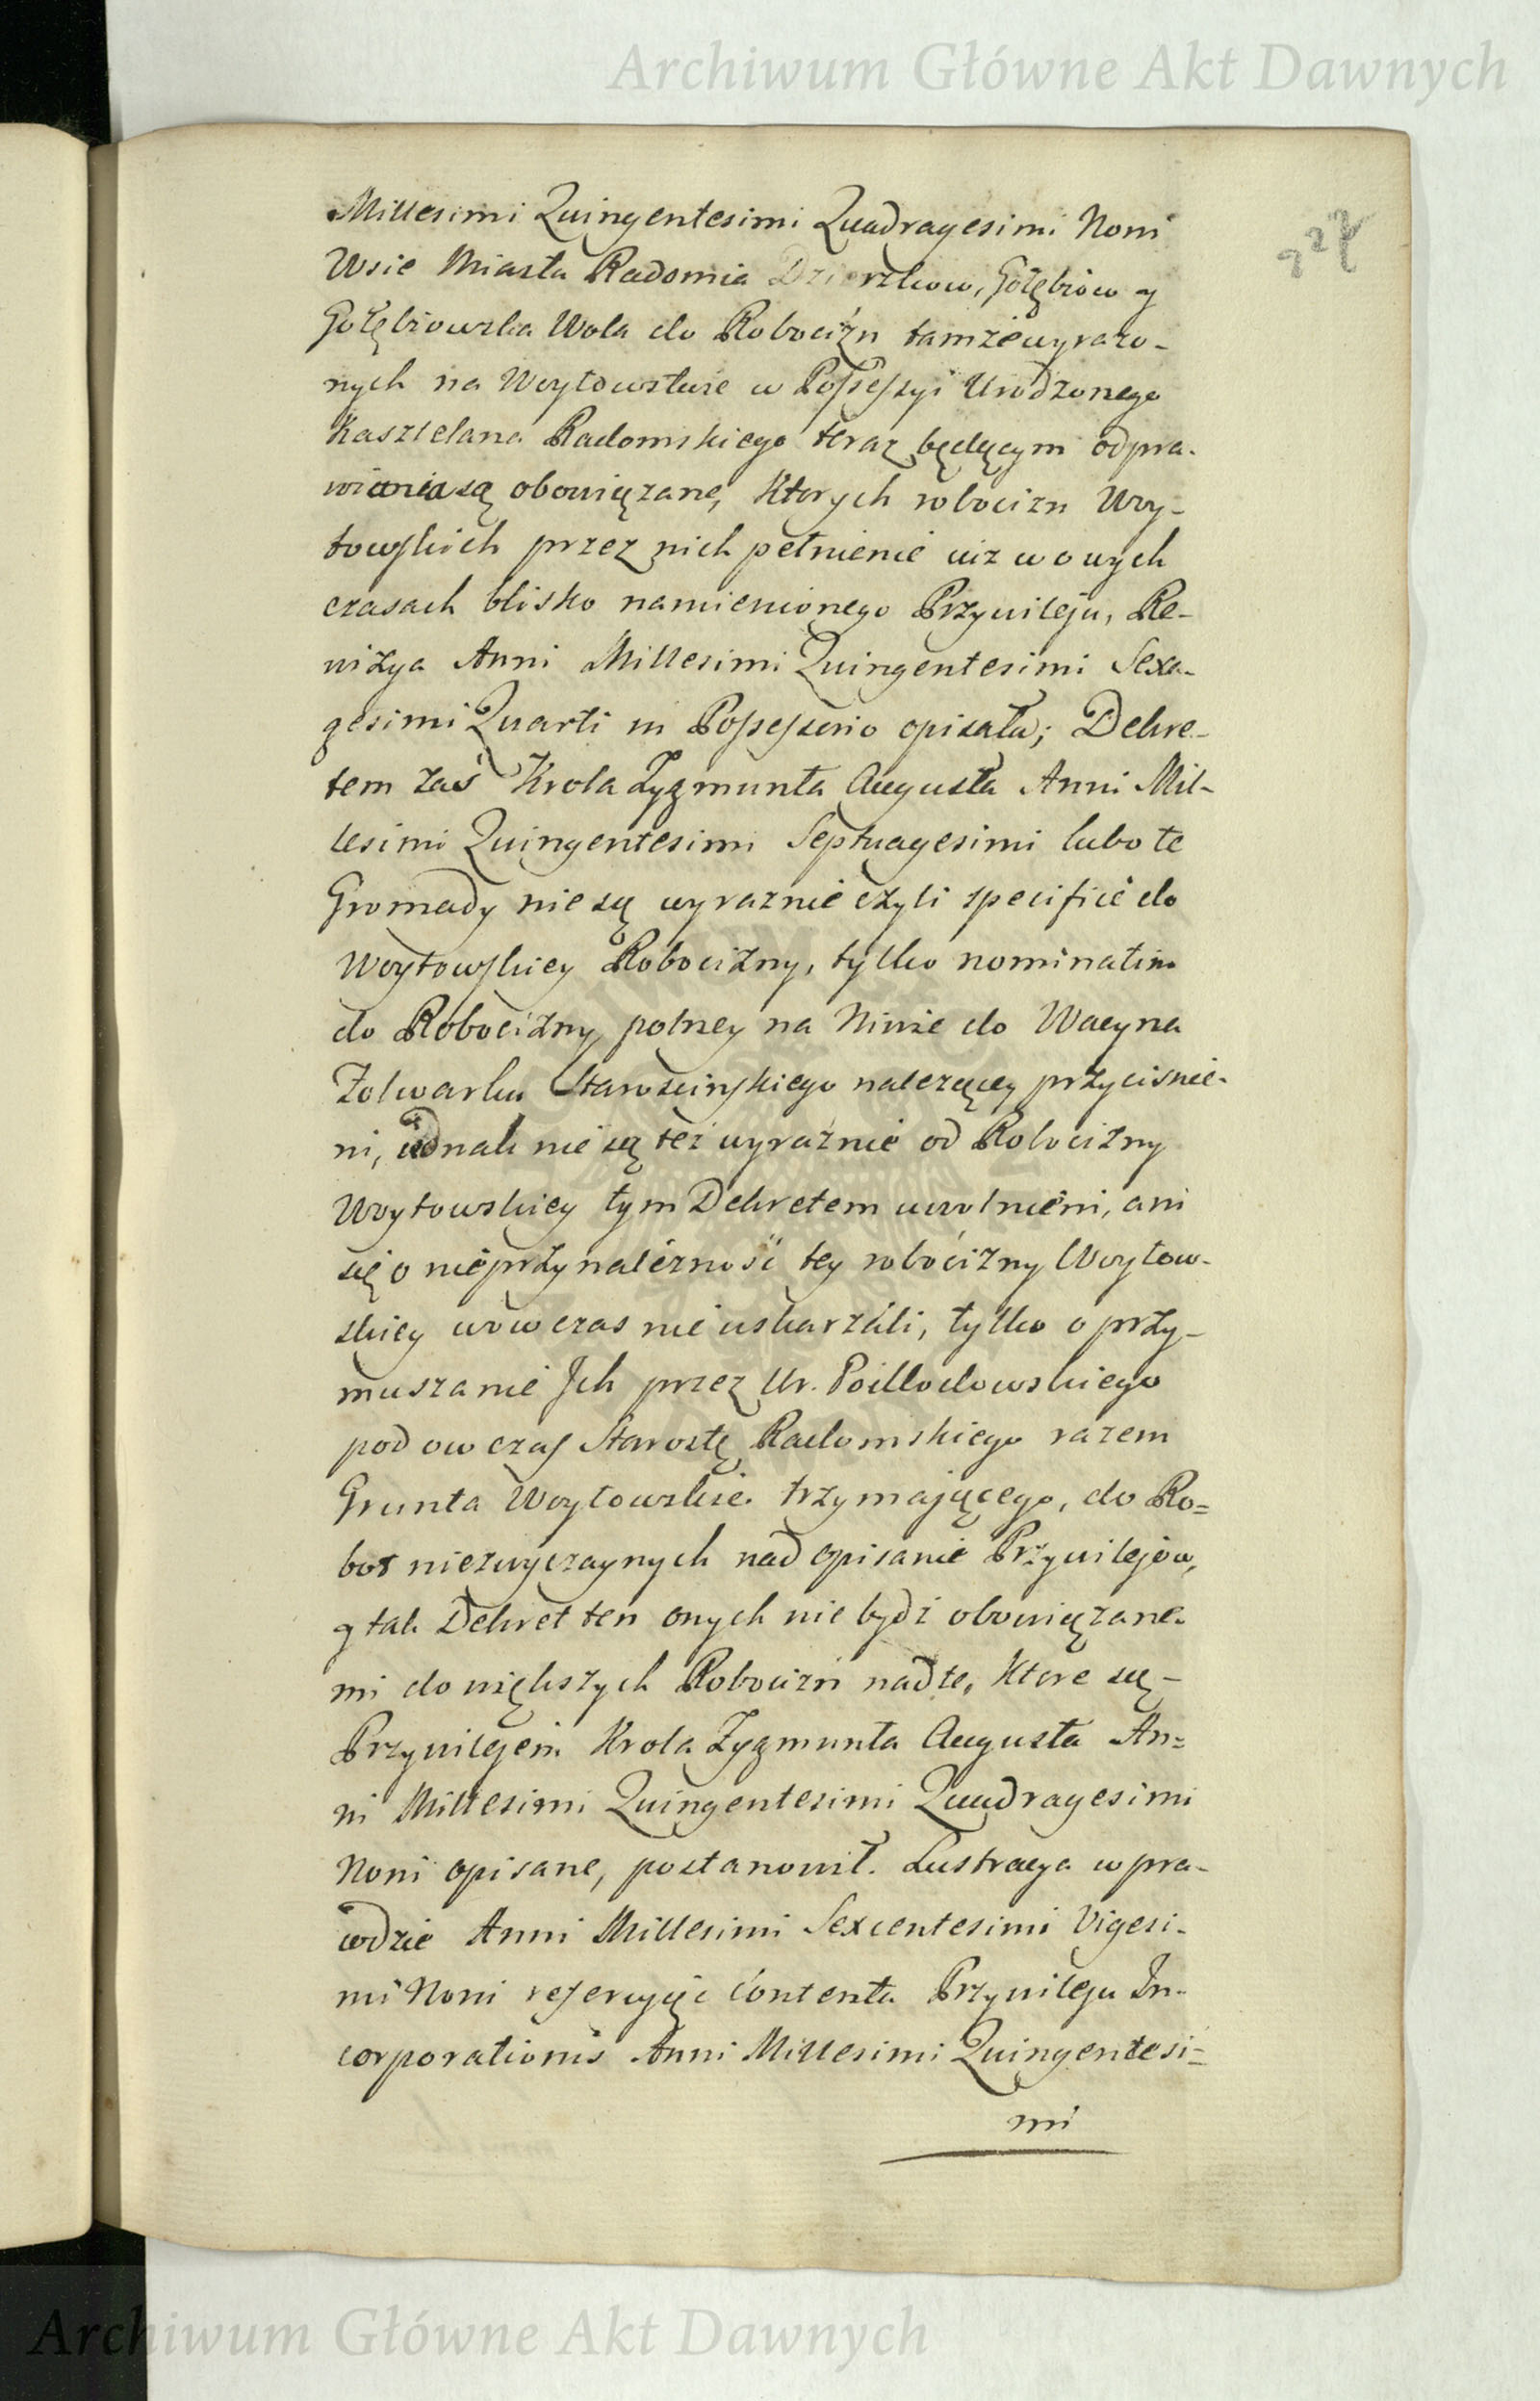 Archiwum Główne Akt Dawnych
Millesimi Quingentesimi Quadragesimi Noni
Wsie Miasta Radomia Dzierzkow, Gołębiow y
Gołębiowska Wola do Robocizn tamże wyrazo-
nych na Woytowstwie w Possessyi Urodzonego
Kasztelana Radomskiego teraz będącym odpra-
wiania są obowiązane, ktorych robocizn Woy-
towskich przez nich pełnienie iuż w owych
czasach blisko namienionego Przywileju, Re-
wizya Anni Millesimi Quingentesimi Sexa-
gesimi Quarti in Possessorio opisała; Dekre-
tem zaś Krola Zygmunta Augusta Anni Mil-
lesimi Quingentesimi Septuagesimi lubo te
Gromady nie są wyraznie czyli specifice do
Woytowskiey Robocizny, tylko nominatim
do Robocizny polney na Niwie do Wacyna
Folwarku Starościnskiego nalezącey przyciśnie-
ni, iednak nie są też wyraźnie od Robocizny
Woytowskiey tym Dekretem uwolnieni, ani
się o nieprzynależność tey robocizny Woytow-
skiey wowczas nie uskarżali, tylko o przy-
muszanie Ich przez Ur. Podlodowskiego
pod ow czas Starostę Radomskiego razem
Grunta Woytowskie trzymaiącego, do Ro=
bot niezwyczaynych nad opisanie Przywilejow,
y tak Dekret ten onych nie bydź obowiązane-
mi do większych Robocizn nad te, ktore są -
Przywilejem Krola Zygmunta Augusta An=
ni Millesimi Quingentesimi Quadragesimi
Noni opisane, postanowił. Lustracya wpra-
wdzie Anni Millesimi Sexcentesimi Vigesi-
mi Noni referuiąc contenta Przywileju In-
corporationis Anni Millesimi Quingentesi=
mi
Archiwum Główne Akt Dawnych